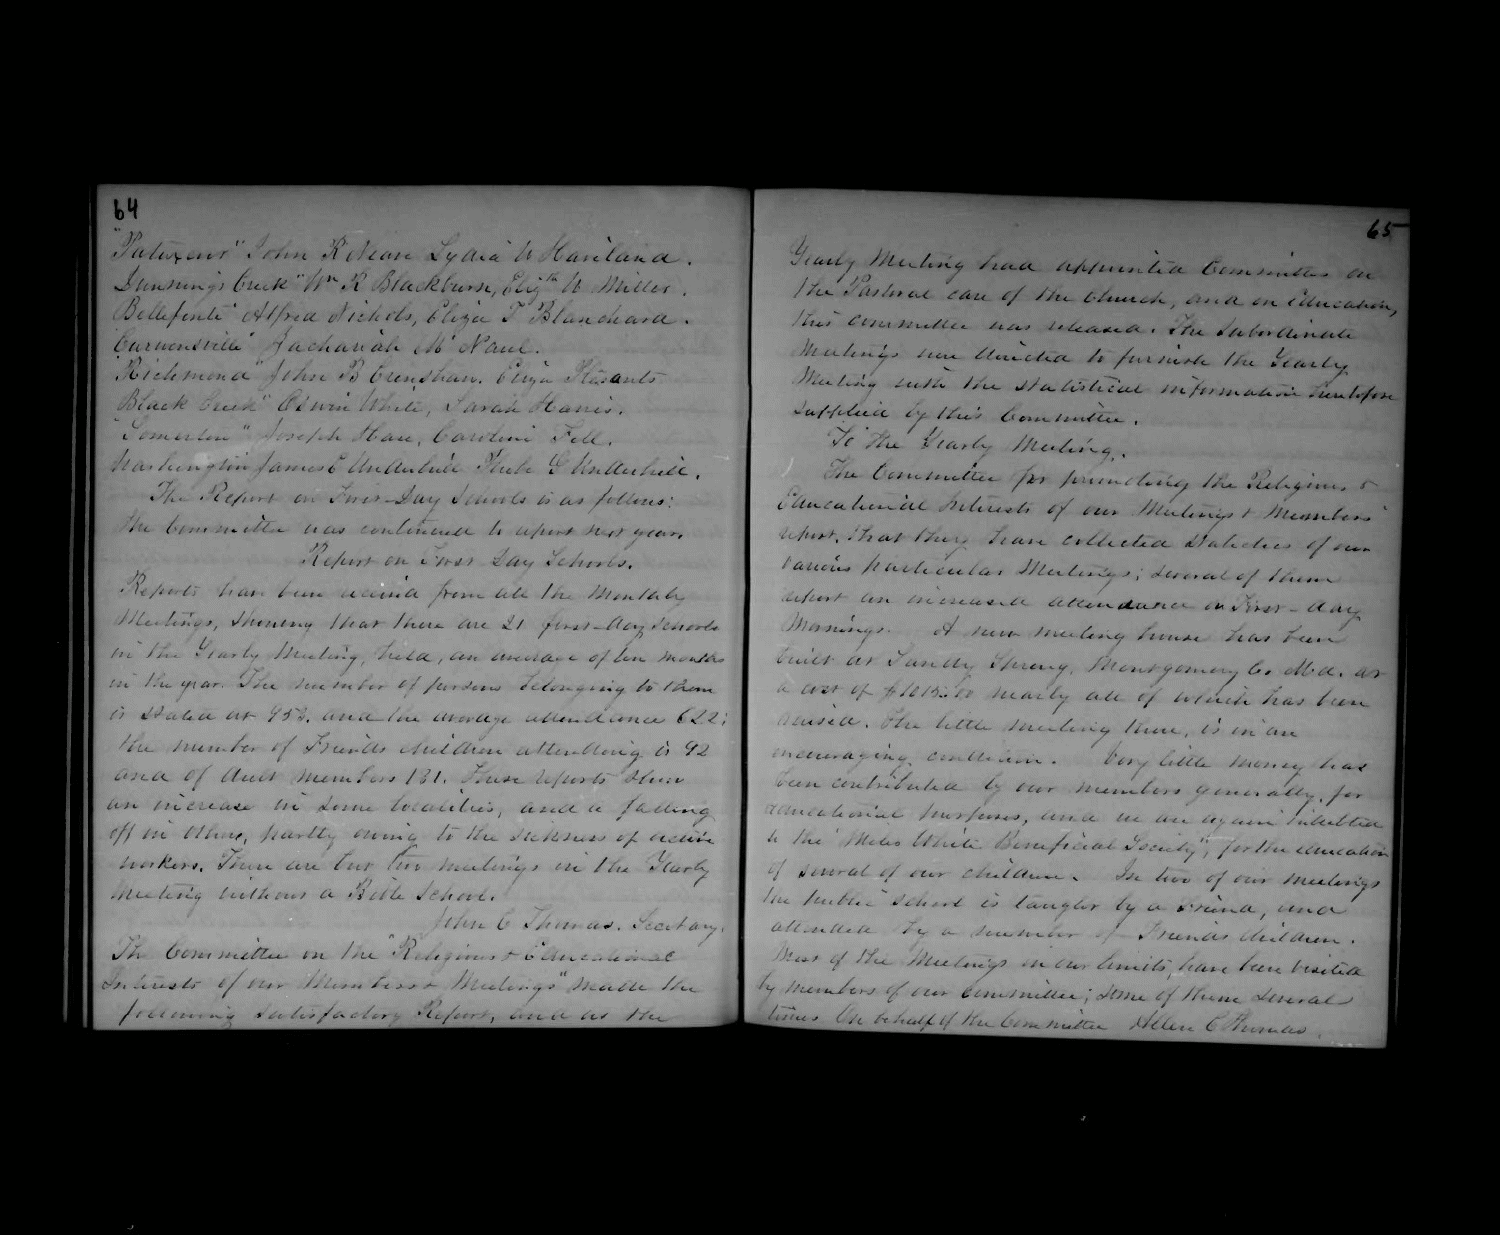 64
"Patuxent" John R Neave Lydia W Haviland.
Dunnings Creek" Wm R Blackburn, Elizth W Miller.
Bellefonte" Alfred Nichols, Eliza T Blanchard.
"Curwensville" Zachariah Mc Naul.
"Richmond" John B Crenshaw. Eliza Pleasants
Black Creek" Oswin White, Sarah Harris.
"Somerton" Joseph Hare, Caroline Fell.
Washington James E Underhill Phebe G Underhill.
The Report on First-Day Schools is as follows:
the Committee was continued to report next year.
Report on First Day Schools.
Reports have been received from all the Monthly
Meetings, showing that there are 21 first-day schools
in the Yearly Meeting, held, an average of ten months
in the year. The number of persons belonging to them
is stated at 952. and the average attendance 622;
the number of Friends children attending is 92
and of adult members 181. These reports show
an increase in some localities, and a falling
off in others, partly owing to the sickness of active
workers. There are but two meetings in the Yearly
Meeting without a Bible School.
John C Thomas. Secretary.
The Committee on the "Religious & Educational
Interests of our Members & Meetings" made the
following satisfactory Report, and as the
65
Yearly Meeting had appointed Committees on
the Pastoral care of the Church, and on Education,
this committee was released. The Subordinate
Meetings were directed to furnish the Yearly
Meeting with the statistical information heretofore
supplied by this Committee.
To the Yearly Meeting.
The Committee for promoting the Religious &
Educational Interests of our Meetings & Members
report, that they have collected Statistics of our
various particular Meetings; several of them
report an increased attendance on First-day
Mornings. A new meeting house has been
built at Sandy Spring, Montgomery Co. Md. at
a cost of nearly all of which has been
raised. The little meeting there, is in an
encouraging condition. Very little money has
been contributed by our members generally, for
educational purposes, and we are again indebted
to the "Miles White Beneficial Society", for the education
of several of our children. In two of our meetings
the public school is taught by a Friend, and
attended by a number of Friends children.
Most of the Meetings in our limits, have been visited
by members of our committee; some of them several
times. On behalf of the Committee Allen C Thomas.